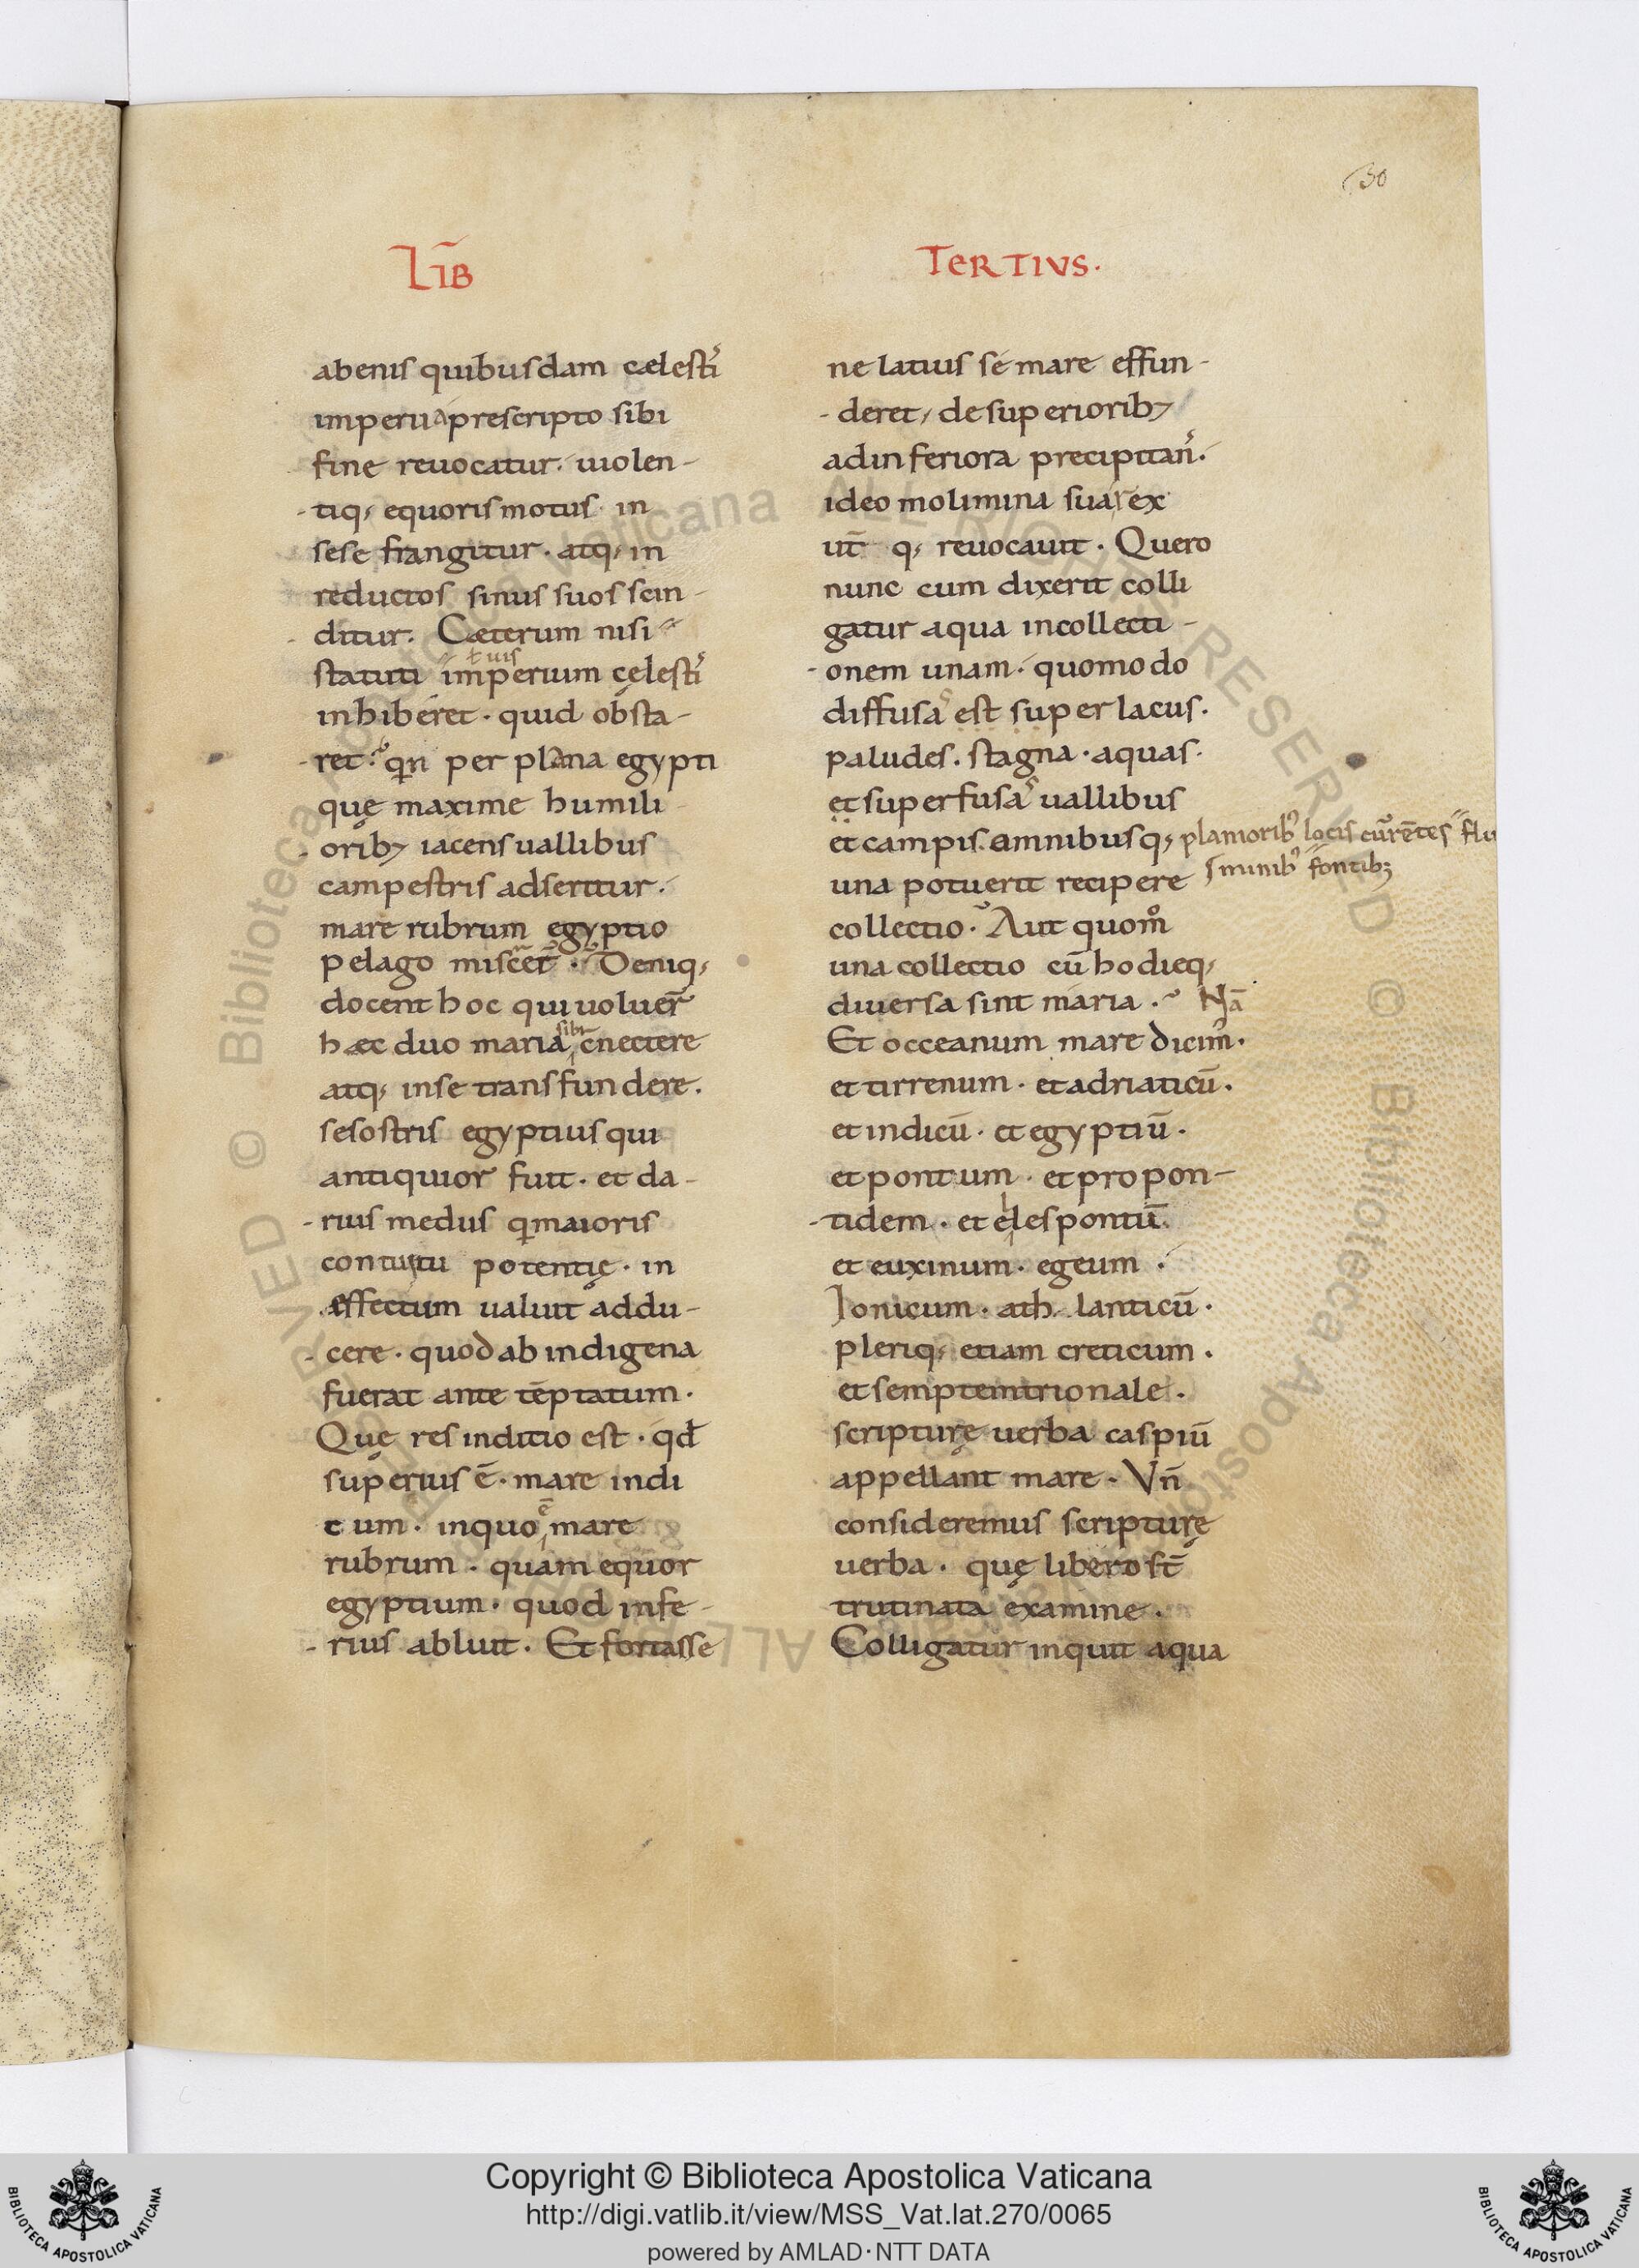 30
LIB̄
TERTIVS.
abenis quibusdam cælesti᷒
imperii a prescripto sibi
fine reuocatur. uiolen-
-tiq; equoris motus in
sese frangitur. atq; in
reductos sinus suos scin-
ditur. Cæterum nisi
ł uis
statuti imperium cęlesti᷒
inhiberet. quid obsta-
-ret. qn̄ per plana egypti
quę maxime humili
-orib; iacens uallibus
campestris adseritur.
mare rubrum egyptio
pelago miscer̄. Deniq;
docent hoc qui uoluer̄
sibi
hæc duo maria cnectere
atq; inse transfundere.
sesostris egyptius qui
antiquior fuit. et da-
-rius medus q maioris
contuitu potentię. in
æffectum uoluit addu-
-cere. quod ab indigena
fuerat ante tēptatum.
Quę res inditio est. qd̄
superius ē. mare indi
ē
cum. inquo mare
rubrum. quam equor
egyptium. quod infe-
-rius abluit. Et fortasse
ne latius se mare effun-
-deret, de superiorib;
adinferiora precipitan᷒.
ideo molimina sua rex
ut̄ q; reuocauit. Quero
nunc cum dixerit colli
gatur aqua incollecti-
-onem unam. quomodo
diffusa᷒ est super lacus.
paludes. stagna. aquas.
et superfusa᷒ uallibus
et campis. amnibusq; planiorib᷒ locis currētes flu
una potuerit recipere minib᷒ fontib;
collectio. Aut quom̊
una collectio cū hodieq;
diuersa sint maria. Nā
Et occeanum mare dicim᷒.
et tirrenum. et adriaticū.
et indicū. et egyptiū.
et pontum. et propon-
-tidem. et elespontū.
et euxinum. egeum.
Ionicum. ath lanticū.
pleriq; etiam creticum.
et semptemtrionale.
scripturę uerba caspiū
appellant mare. Vn̄
consideremus scripturę
uerba. quę libero st̄
trutinata examine.
Colligatur inquit aqua
Copyright © Biblioteca Apostolica Vaticana
http://digi.vatlib.it/view/MSS_Vat.lat.270/0065
powered by AMLAD·NTT DATA
BIBLIOTECA APOSTOLICA VATICANA
BIBLIOTECA APOSTOLICA VATICANA